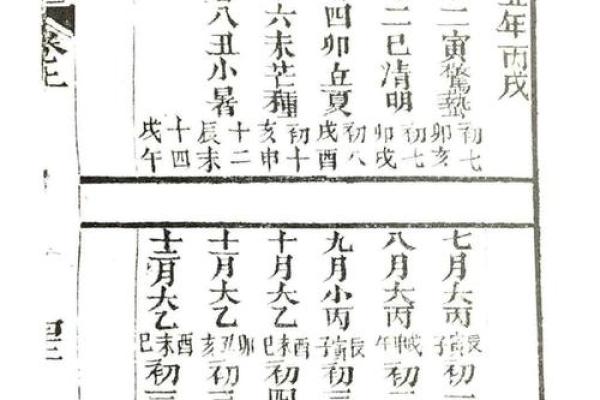 年丙戌
二寅驚蟄初七卯亥
二巳清明初七卯戌
四卯立夏初八戌酉
六未芒種初十亥申
八丑小暑十二辰未
十四戌午
七月大丙辰寅子初
八月大丙戌申午初
九月小丙辰寅子初
十月大乙酉未巳初四
十一月大乙卯丑亥初
十二月大乙酉未巳初